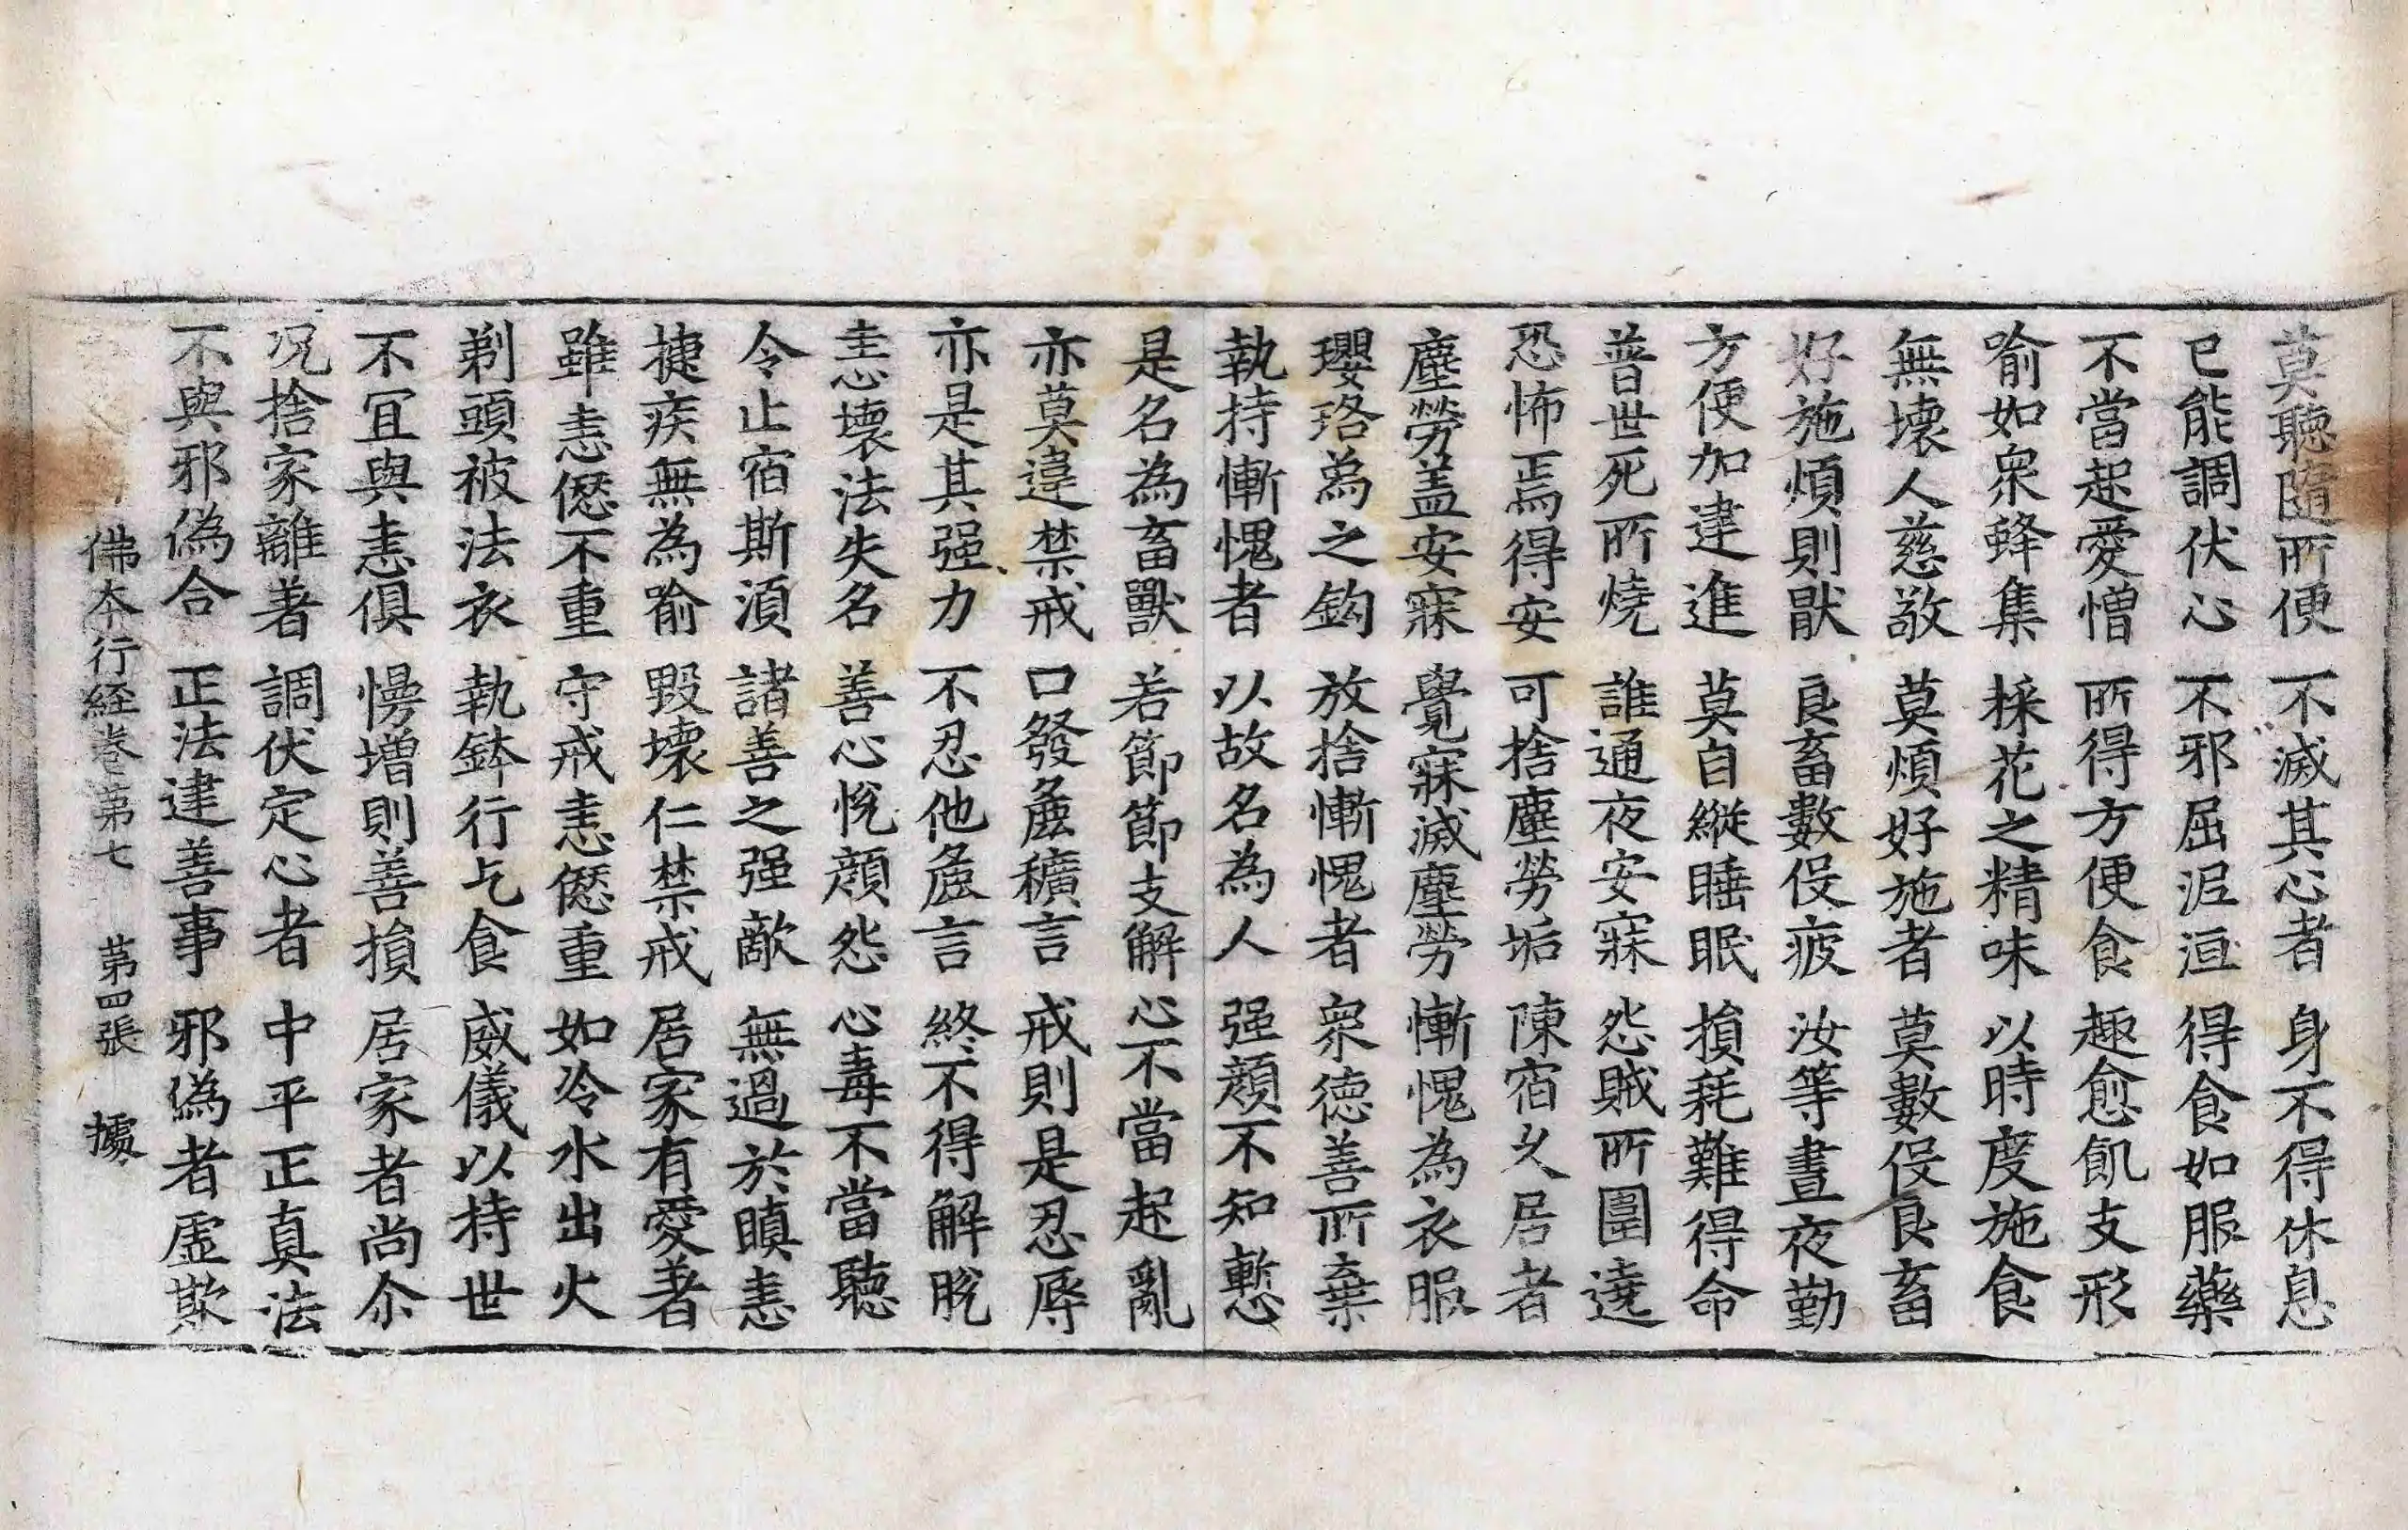 莫聽隨所便 不滅其心者 身不得休息
已能調伏心 不邪屈泥洹 得食如服藥
不當起愛憎 所得方便食 趣愈飢支形
喻如衆蜂集 採花之精味 以時度施食
無壞人慈敬 莫煩好施者 莫數伇良畜
好施煩則猒 良畜數伇疲 汝等晝夜勤
方便加建進 莫自縱睡眠 損耗難得命
普世死所燒 誰通夜安寐 怨賊所圍遶
恐怖焉得安 可捨塵勞垢 陳宿久居者
塵勞盖安寐 覺寐滅塵勞 慚愧為衣服
瓔珞為之鈎 放捨慚愧者 衆德善所棄
執持慚愧者 以故名為人 强顏不知慙
是名為畜獸 若節節支解 心不當起亂
亦莫違禁戒 口發麁穬言 戒則是忍辱
亦是其强力 不忍他麁言 終不得解脫
恚壞法失名 善心悅顏怨 心毒不當聽
令止宿斯須 諸善之强敵 無過於瞋恚
捷疾無為喻 毀壞仁禁戒 居家有愛著
雖恚㥛不重 守戒恚㥛重 如冷水出火
剃頭被法衣 執鉢行乞食 威儀以持世
不冝與恚俱 慢增則善損 居家者尚尒
况捨家離著 調伏定心者 中平正真法
不與邪偽合 正法建善事 邪偽者虛欺
佛本行経卷第七 第四張 㩀